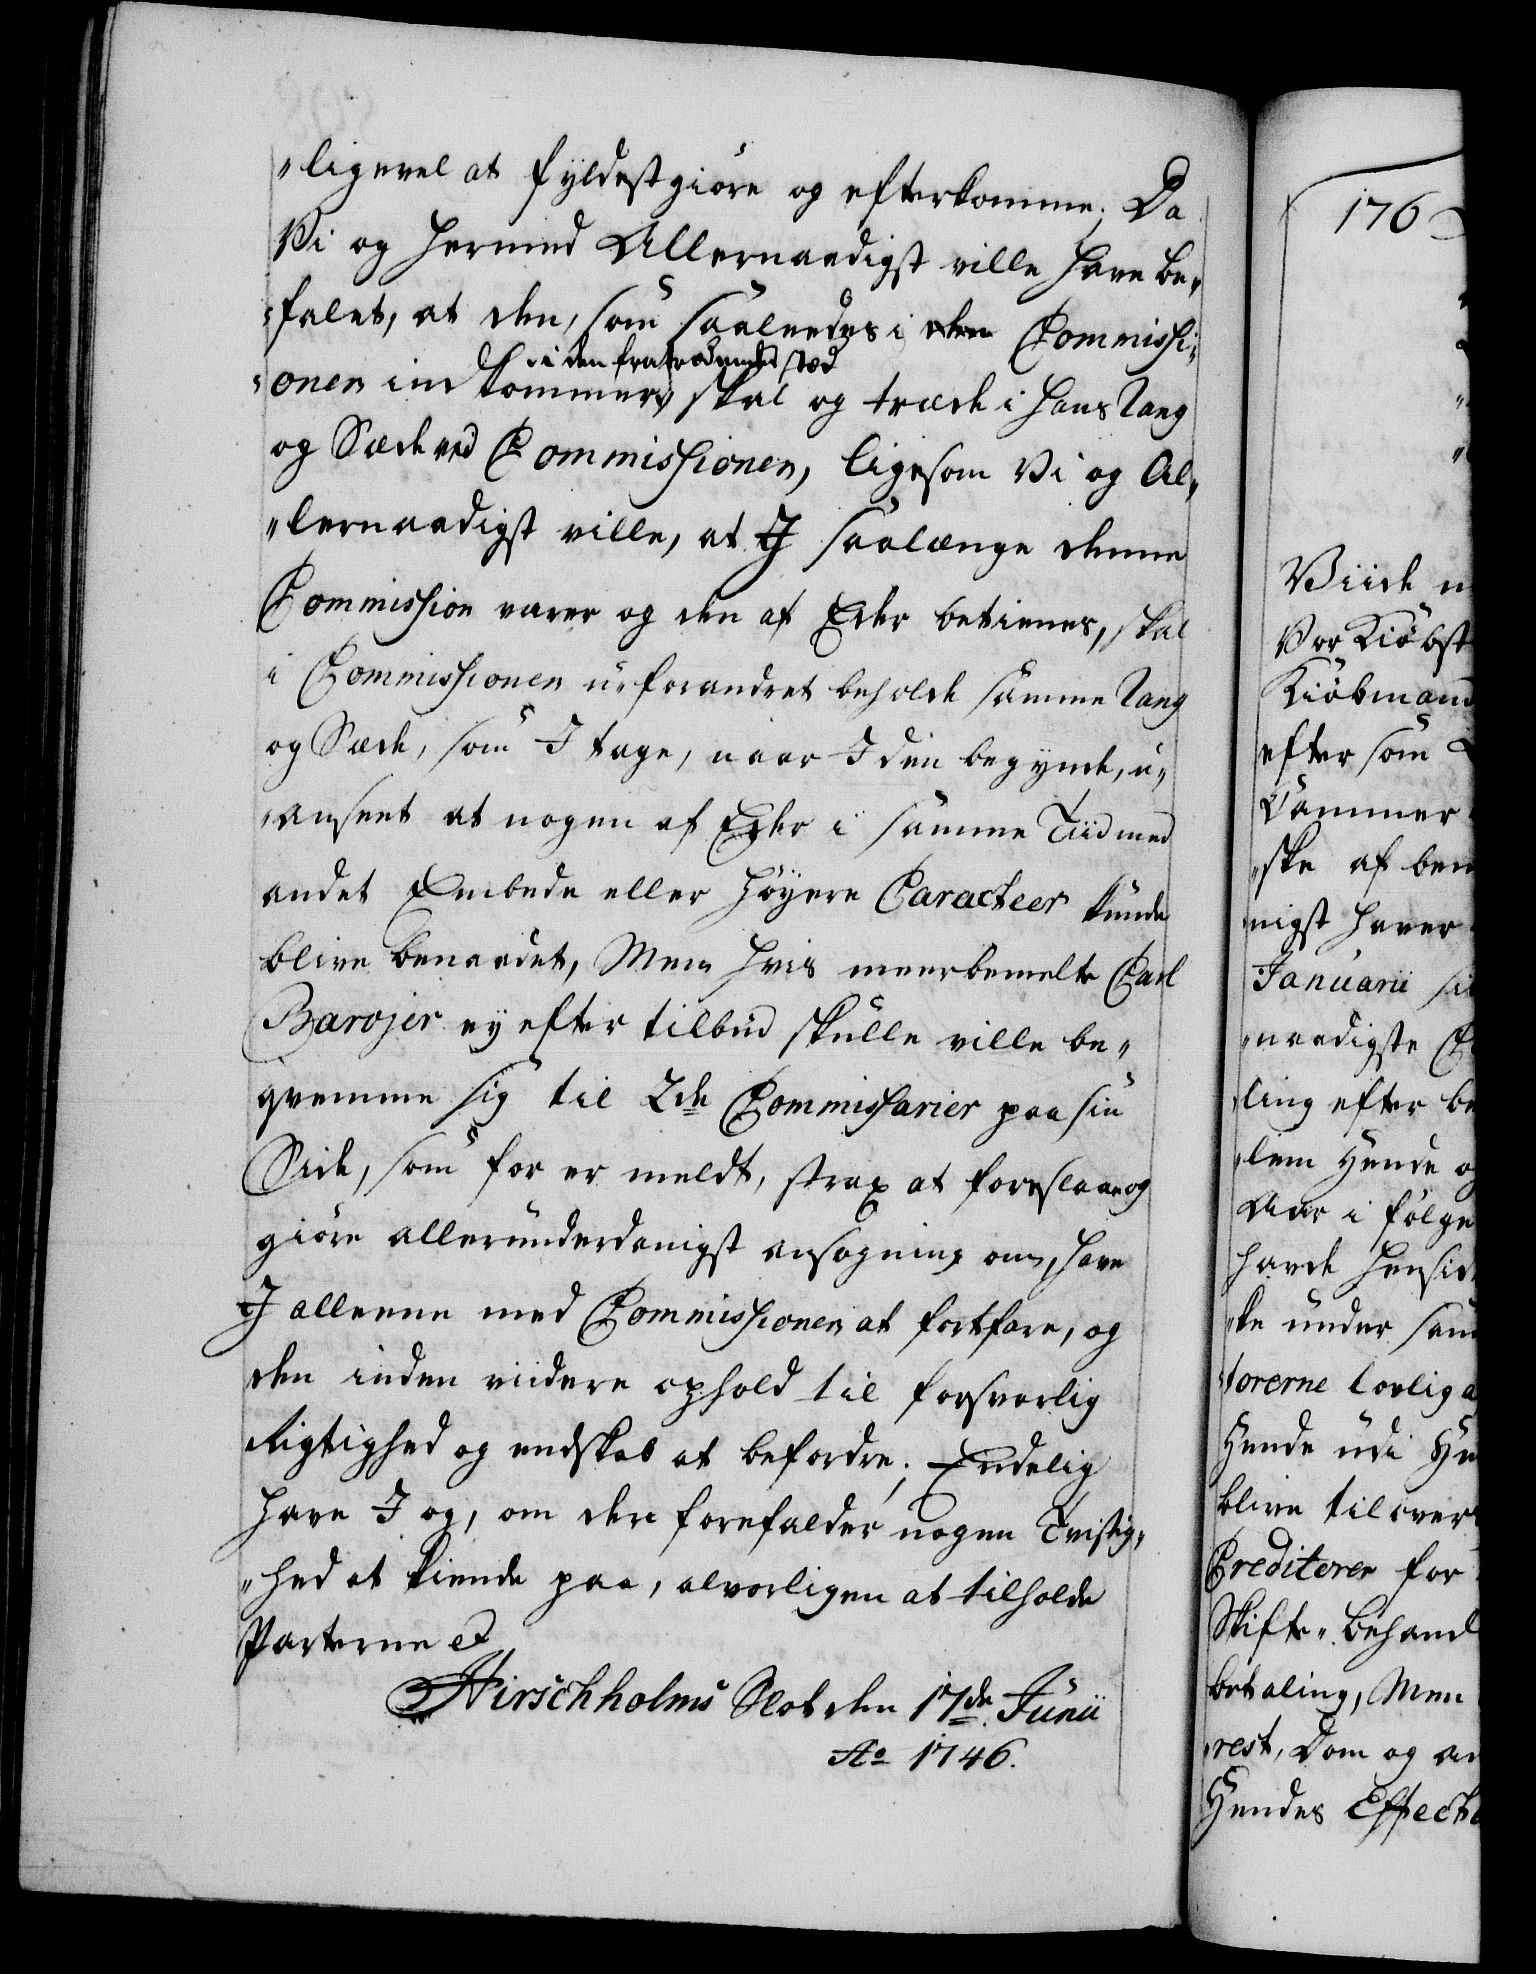 "ligevel at fyldestgiöre og efterkomme; Da
Vi og hermed Allernaadigst ville have be„
„falet, at den, som saaledes i den Commissi„
i den fratrædendes stæd
„onen indkommer, skal og træde i hans Rang
og Sæde ved Commissionen, ligesom Vi og Al„
„lernaadigst ville, at I saalænge denne
Commission varer og den af Eder betienes, skal
i Commissionen u„forandret beholde samme Rang
og Sæde, som I tage, naar I den begynde, u„
„anseet at nogen af Eder i samme Tiid med
andet Embede eller höyere Caracteer kunde
blive benaadet, Men hvis meerbemelte Carl
Barojer ey efter tilbud skulle ville be„
qvemme sig til 2de Commissarier paa sin
Side, som for er meldt, strax at foreslaae og
giöre allerunderdanigst ansøgning om, have
I alleene med Commissionen at fortfare, og
den inden viidere ophold til forsvarlig
Rigtighed og endskab at befordre; Endelig
have I og, om der forefalder nogen Tvistig„
„hed at kiende paa, alvorligen at tilholde
Parterne &
Hirschholms Slot den 17de Junii
Ao 1746.
176
Viide
Vor Kiöbst
Kiöbmand
efter som
Cammer
„ske af
nigst haver
Januarii
„naadigste
ling efter
„lem Hende og
Aar i følge
havde
„ke under
torerne lovlig
Hende udi
blive tilover
Creditorer for
Skifte„behand
betaling, Men
rest, Dom og
Hendes Effect